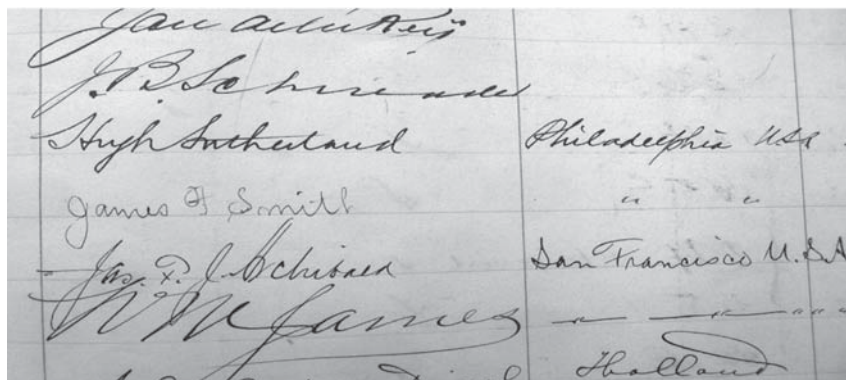 J. B. Schrieader
Hugh Sutherland Philadelphia USA
James F Smith " "
Jas. F. J. Archibald San Francisco U.S.A
W M James " " " "
Holland